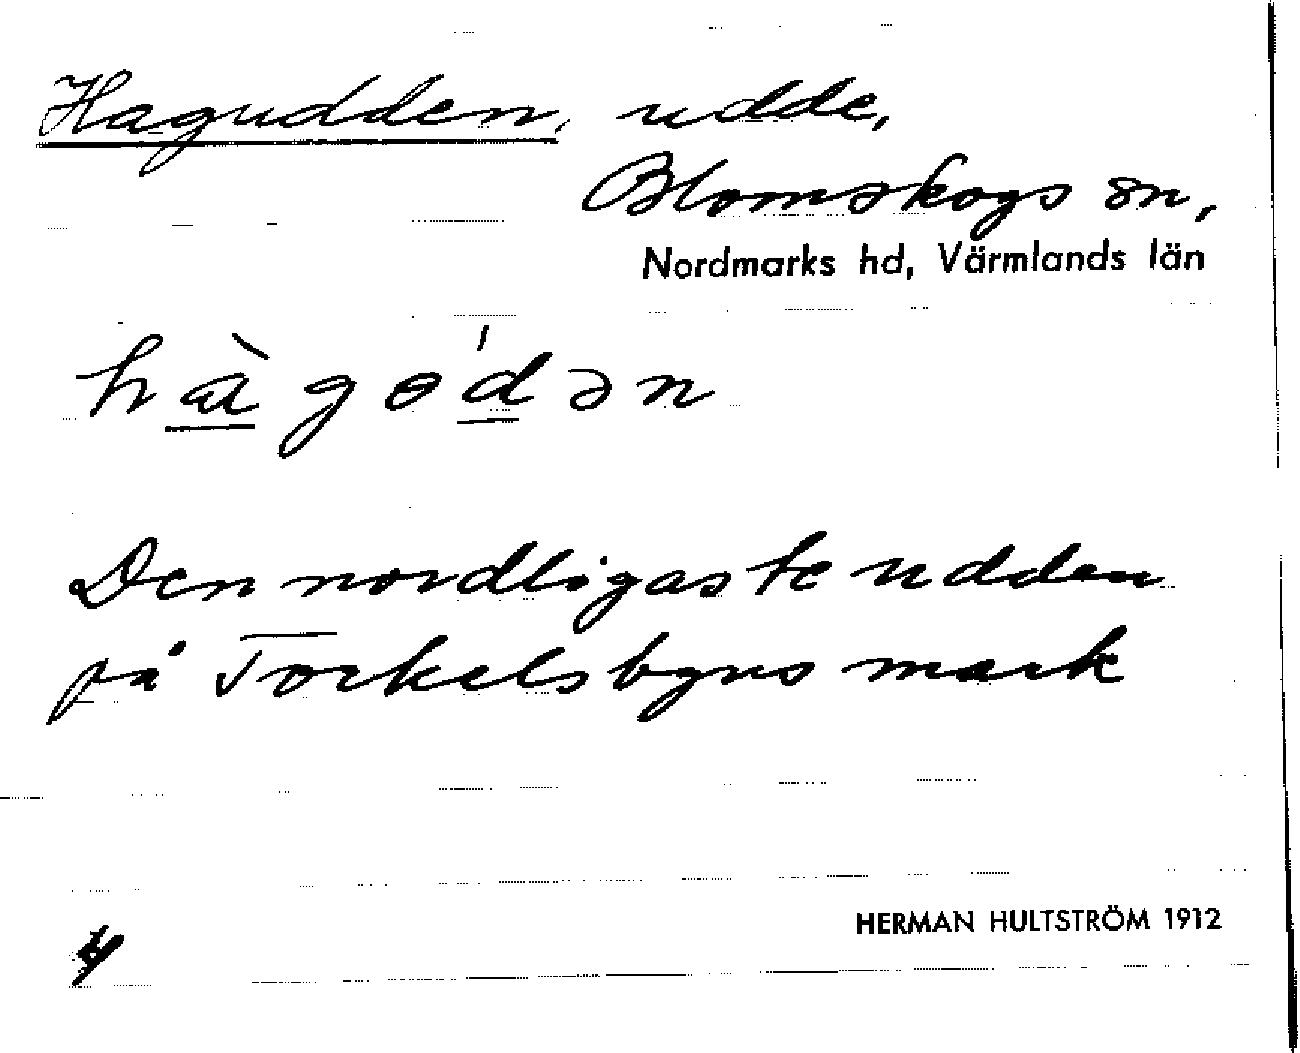 Hagudden, udde,
Blomskogs sn,
Nordmarks hd, Värmlands län
hàgɵ́dən
Den nordligaste udden
på Torkelsbyns mark
HERMAN HULTSTRÖM 1912